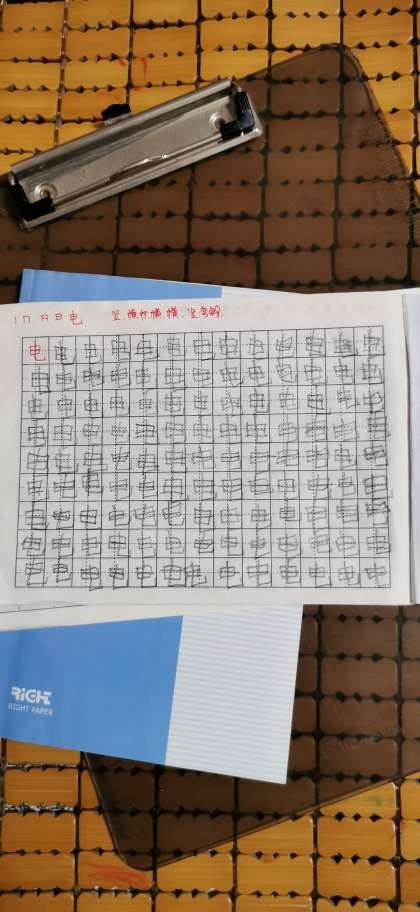 丨 冂 日 电 竖.横折横.横.竖弯钩
电电电电电电电电电电电电电
电电电电电电电电电电电电电
电电电电电电电电电电电电电
电电电电电电电电电电电电电
电电电电电电电电电电电电电
电电电电电电电电电电电电电
电电电电电电电电电电电电电
电电电电电电电电电电电电电
电电电电电电电电电电电电电
RIGHT
RIGHT PAPER